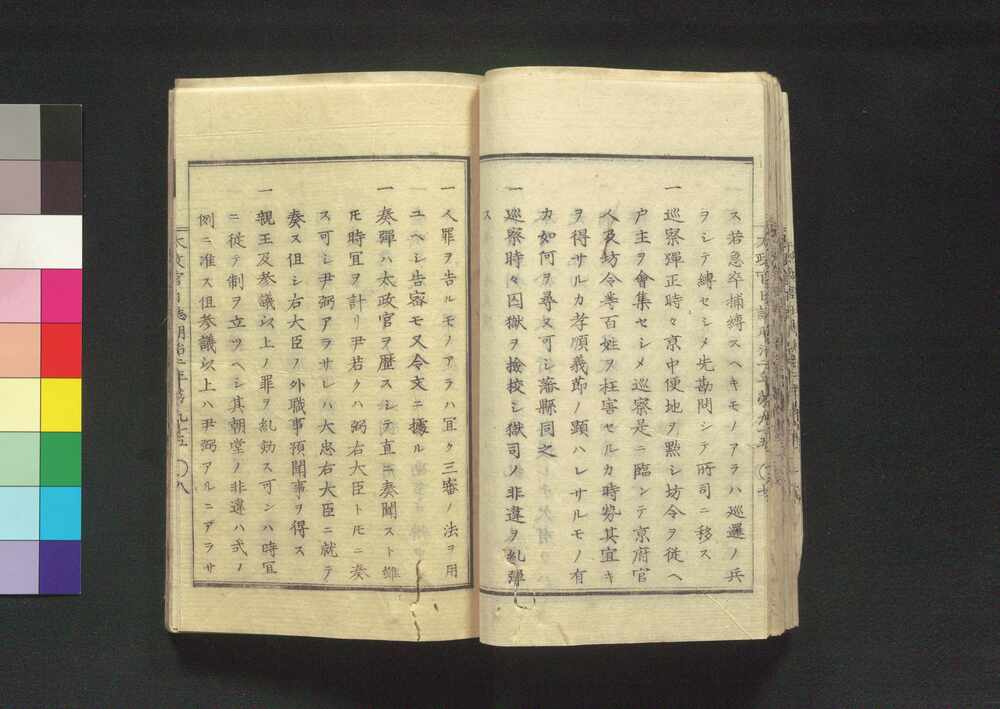 ス若急卒捕縛スヘキモノアラハ巡邏ノ兵
ヲシテ縛セシメ先勘問シテ所司ニ移ス
一巡察彈正時々京中便地ヲ點シ坊令ヲ従ヘ
戸主ヲ會集セシメ巡察是ニ臨ンテ京府官
人及坊令等百姓ヲ枉害セルカ時勢其宜キ
ヲ得サルカ孝順義節ノ顕ハレサルモノ有
カ如何ヲ尋ヌ可シ藩縣同之
一巡察時々囚獄ヲ撿挍シ獄司ノ非違ヲ糺彈
ス
一人罪ヲ告ルモノアラハ冝ク三審ノ法ヲ用
ユヘシ告密モ又令文ニ據ル
一奏彈ハ太政官ヲ歴スシテ直ニ奏聞スト雖
モ時宜ヲ計リ尹若クハ弼右大臣トモニ奏
ス可シ尹弼アラサレハ大忠右大臣ニ就テ
奏ス但シ右大臣ノ外職事預聞事ヲ得ス
一親王及参議以上ノ罪ヲ糺劾ス可ンハ時宜
ニ従テ制ヲ立ツヘシ其朝堂ノ非違ハ式ノ
例ニ准ス但参議以上ハ尹弼アルニアラサ
太政官日誌明治二年第九十五 〇八